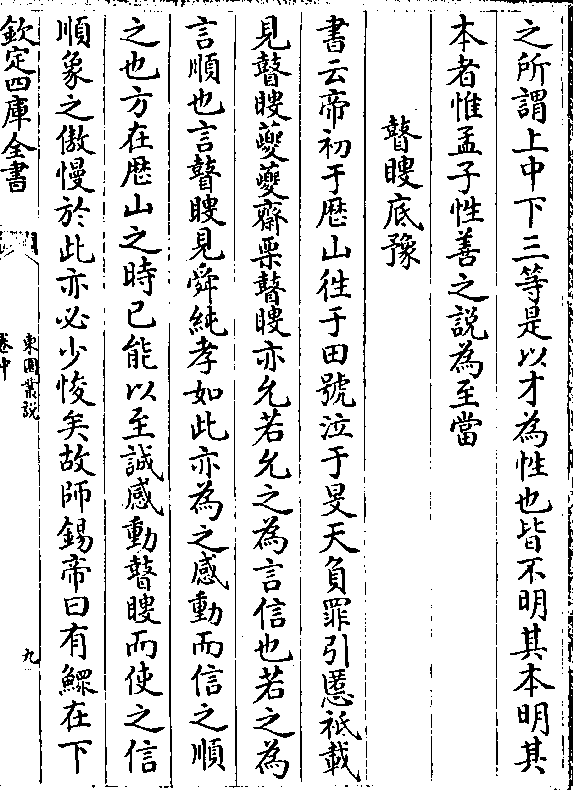 之所謂上中下三等是以才為性也皆不明其本明其
本者惟孟子性善之說為至當
瞽瞍底豫
書云帝初于歷山徃于田號泣于旻天負罪引慝祇載
見瞽瞍夔夔齋栗瞽瞍亦允若允之為言信也若之為
言順也言瞽瞍見舜純孝如此亦為之感動而信之順
之也方在歷山之時已能以至誠感動瞽瞍而使之信
順象之傲慢於此亦必少悛矣故師錫帝曰有鰥在下
欽定四庫全書
東園叢說
卷中
九